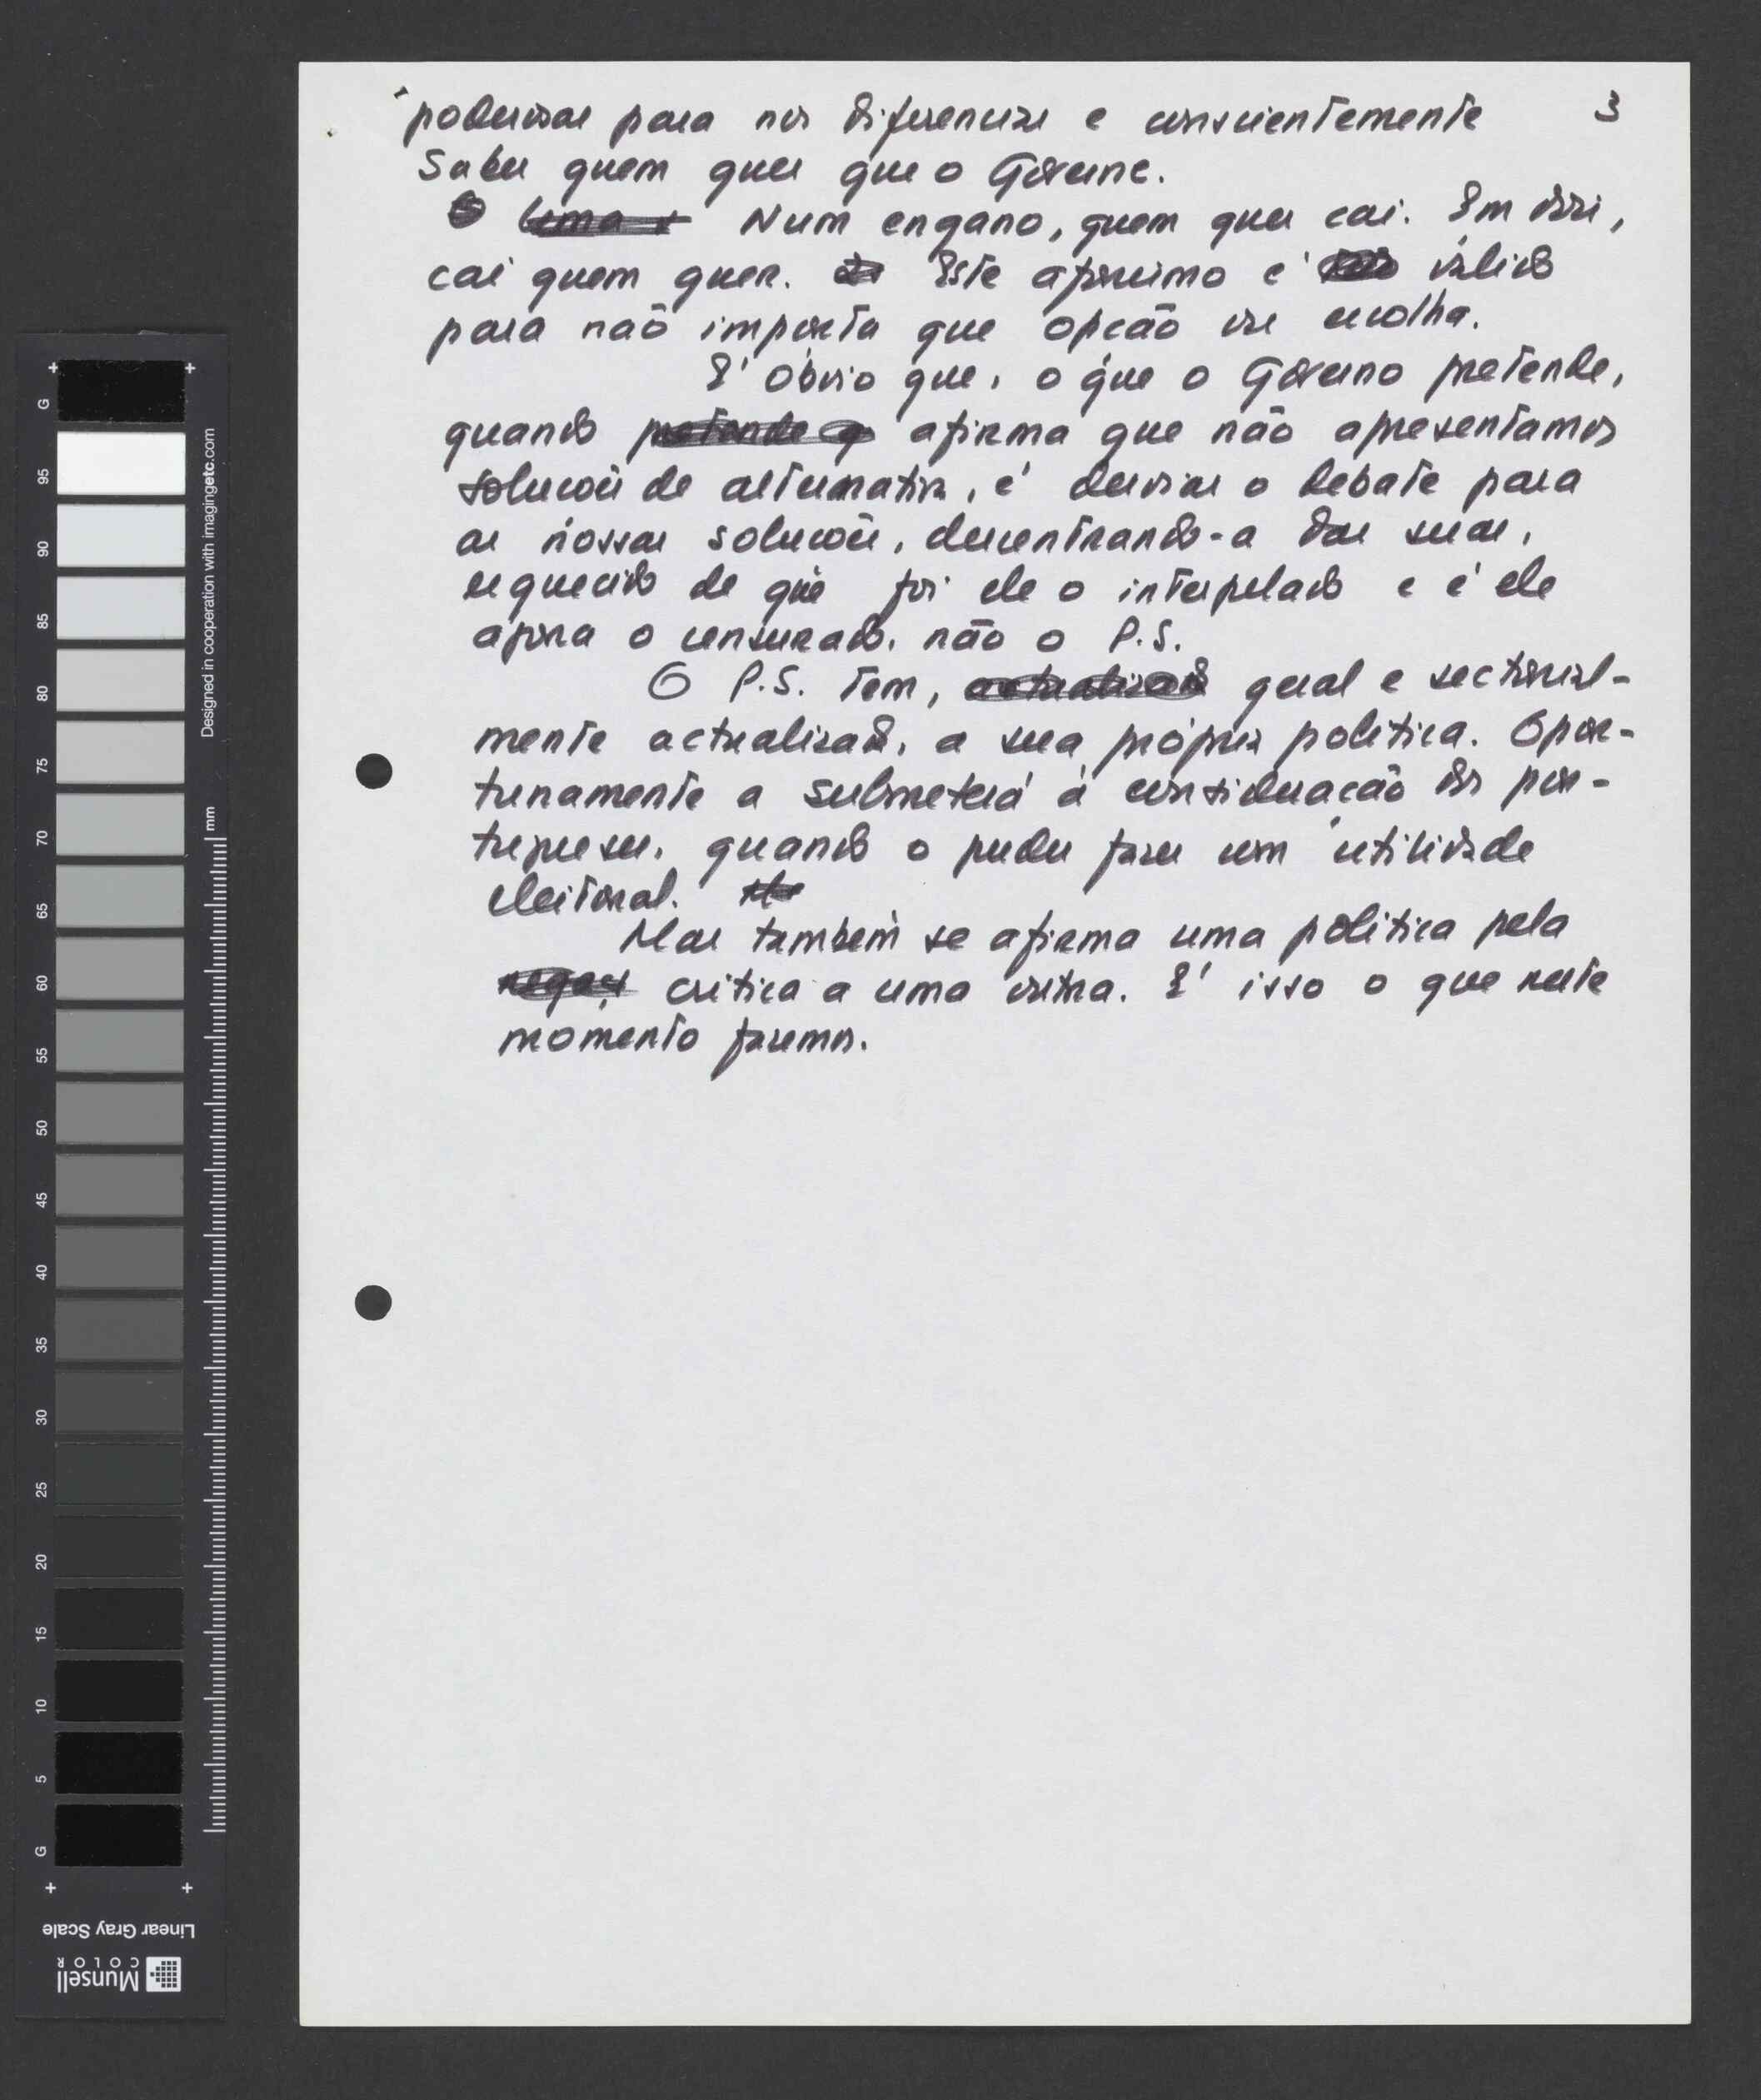 3
poderosas para nos diferenciar e conscientemente
saber quem quer que o Governe.
Num engano, quem quer cai. Em dois,
cai quem quer. Este aforismo é válido
para não importa que opção ou escolha.
É óbvio que, o que o Governo pretende,
quando pretende q afirma que não apresentamos
soluções de alternativa, é desviar o debate para
as nossas soluções, descentrando-a das suas,
esquecido de que foi ele o interpelado e é ele
agora o censurado, não o P.S.
O P.S. tem, actualizada geral e sectorial-
mente actualizada, a sua própria política. Opor-
tunamente a submeterá à consideração dos por-
tugueses, quando o puder fazer com utilidade
eleitoral.
Mas também se afirma uma política pela
crítica a uma outra. É isso o que neste
momento faremos.
G 95 90 85 80 75 70 65 60 55 50 45 40 35 30 25 20 15 10 5 G
Designed in cooperation with imagingetc.com
mm
Linear Gray Scale
Munsell
COLOR